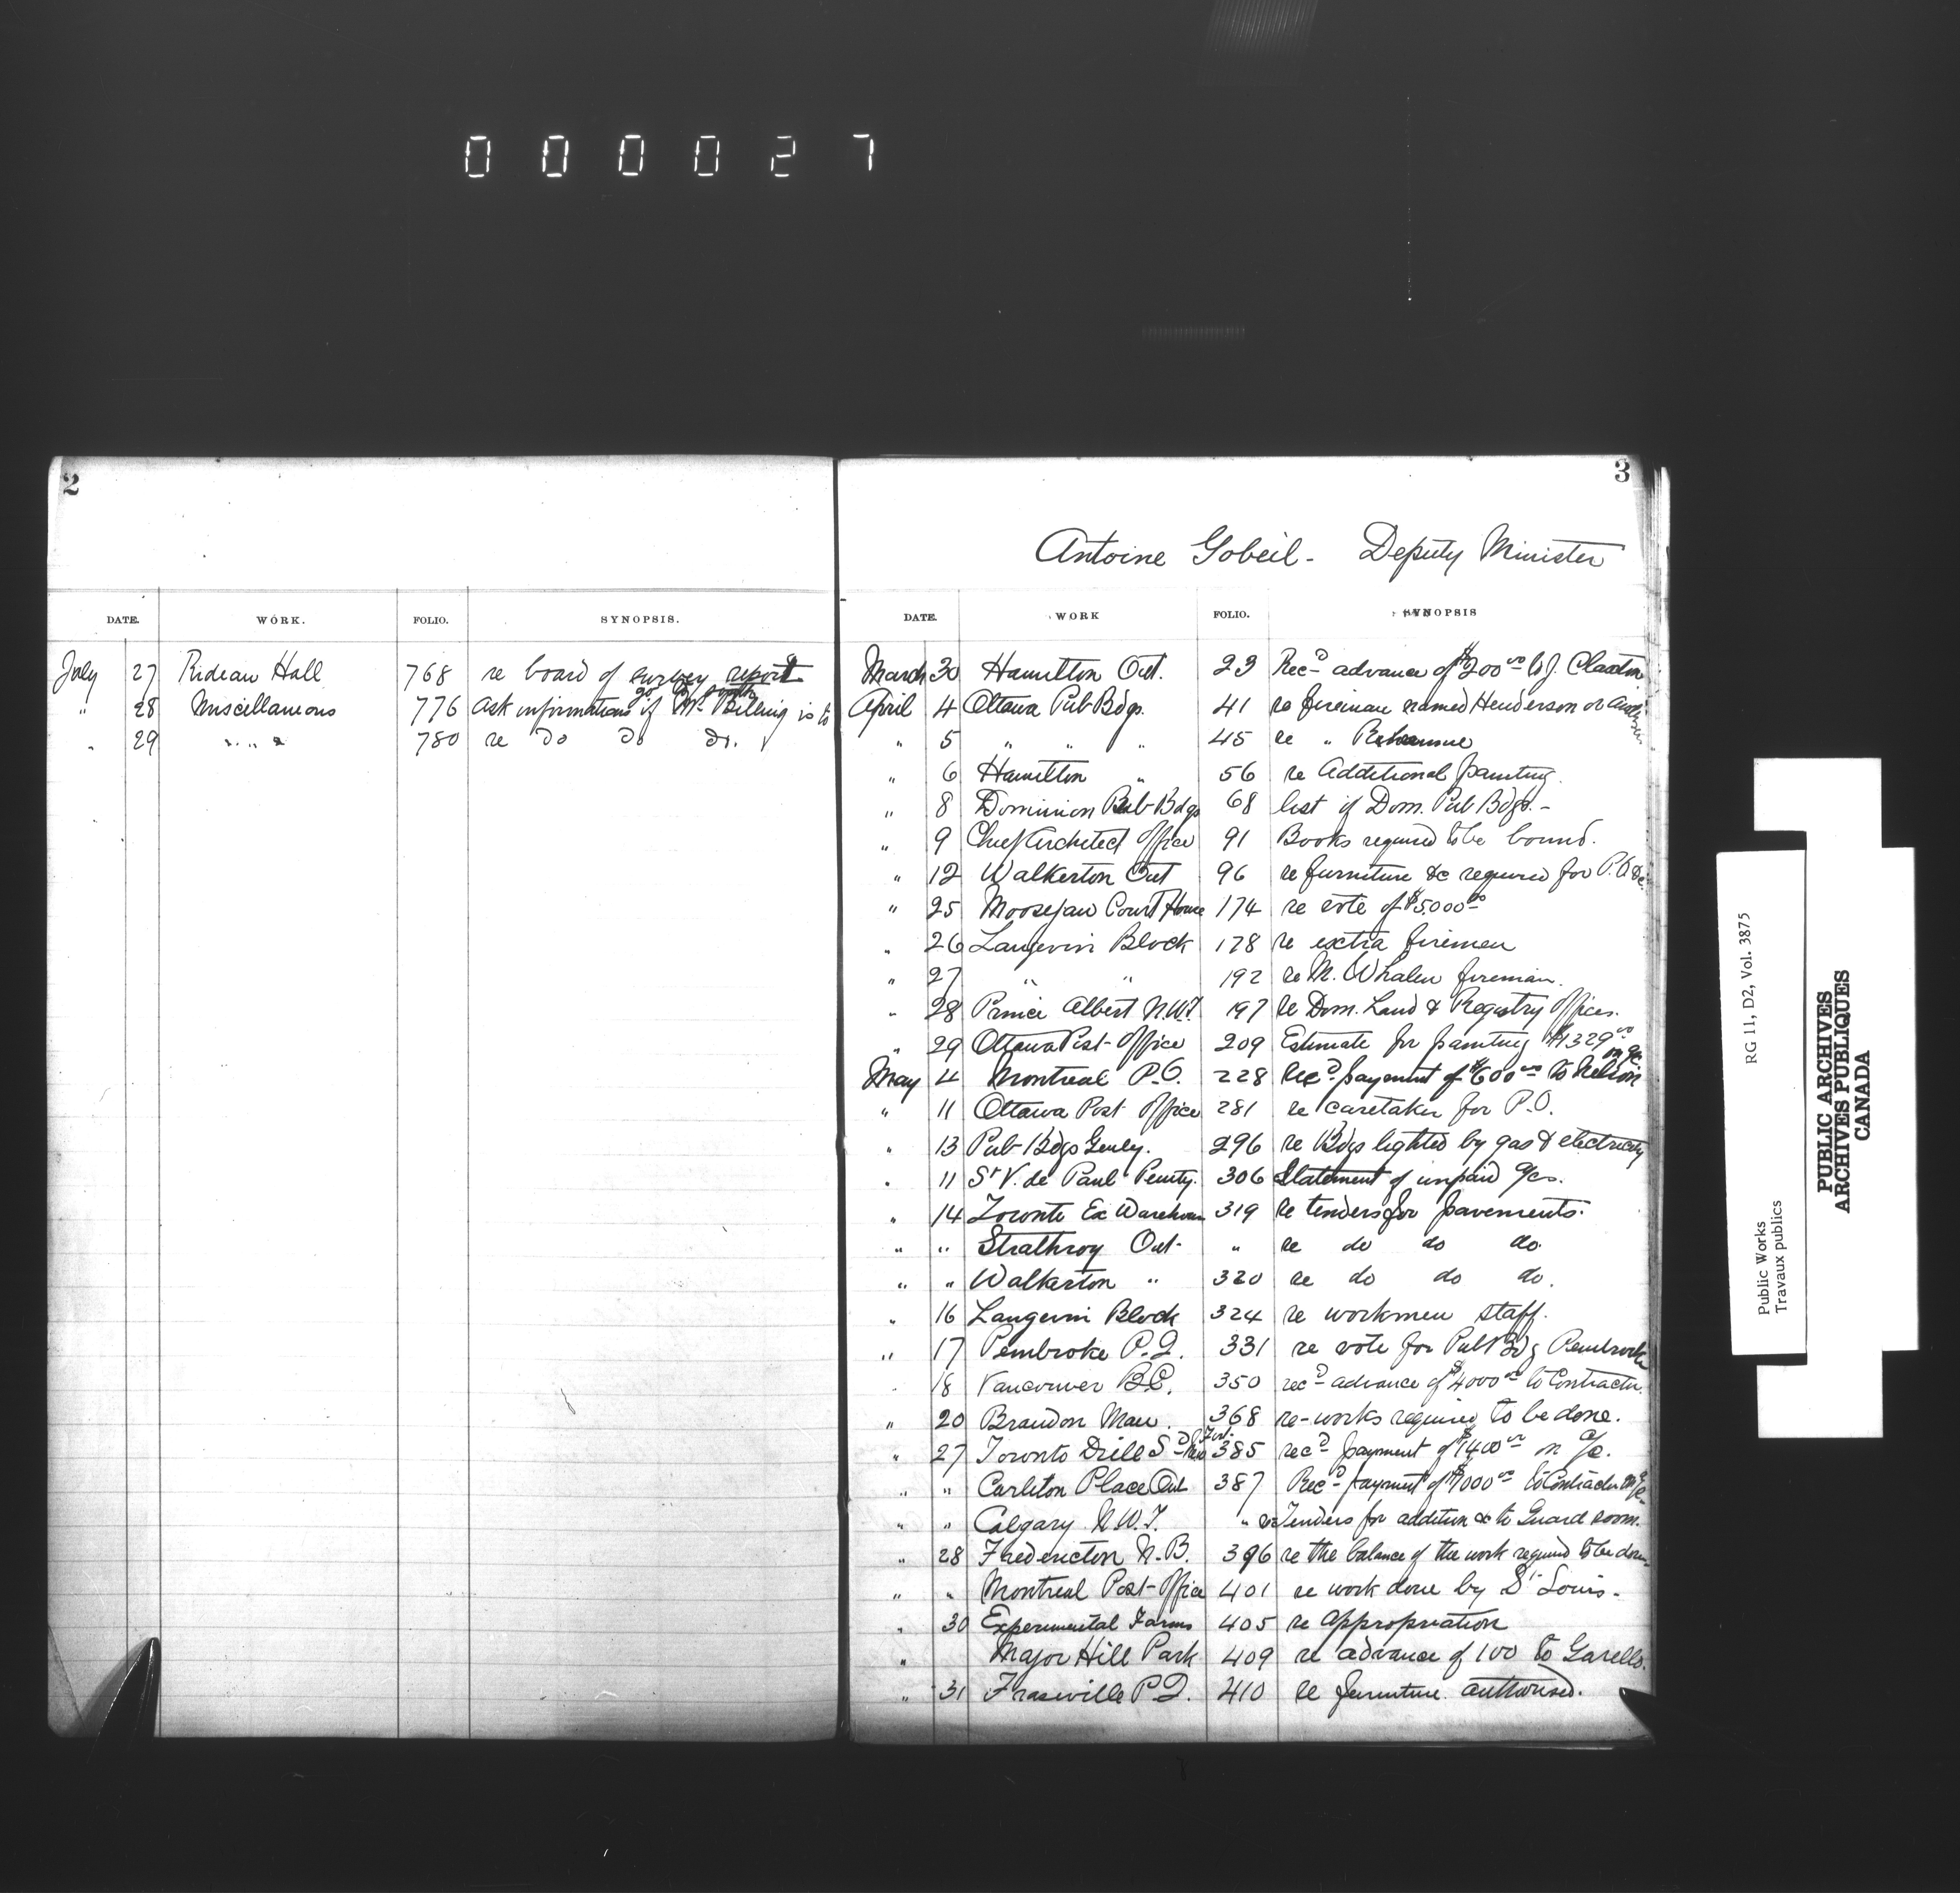 000027
2
DATE. WORK. FOLIO. SYNOPSIS.
July 27 Rideau Hall 768 re board of survey report
go to North
" 28 Miscellaneous 776 Ask informations if Mr. Billing is to
" 29 " " " 780 re do do do.
3
Antoine Gobeil - Deputy Minister
DATE. WORK FOLIO. SYNOPSIS
March 30 Hamilton Ont. 23 Recd advance of $200 00 to J. Claxton
April 4 Ottawa Pub Bdgs. 41 re fireman named Henderson or
" 5 " " " 45 re "
" 6 Hamilton " 56 re Additional painting.
" 8 Dominion Pub Bdgs 68 list of Dom. Pub Bdgs. -
" 9 Chief Architect Office 91 Books required to be bound.
" 12 Walkerton Ont 96 re furniture &c required for P.O. &c.
" 25 Moosejaw Court House 174 re vote of $5000 00
" 26 Langevin Block 178 re extra firemen
" 27 " " 192 re M. Whalen fireman.
" 28 Prince Albert N.W.T. 197 re Dom. Land & Registry Offices.
" 29 Ottawa Post Office 209 Estimate for painting $1329 00
on a/c
May 4 Montreal P.O. 228 Recd payment of $600 00 to Nelson
" 11 Ottawa Post Office 281 re caretaker for P.O.
" 13 Pub Bdgs Genly. 296 re Bdgs lighted by gas & electricity
" 11 St V. de Paul Penity. 306 Statement of unpaid a/cs.
" 14 Toronto Ex Warehouse 319 re tenders for pavements.
" " Strathroy Ont. " re do do do.
" " Walkerton " 320 re do do do.
" 16 Langevin Block 324 re workmen staff.
" 17 Pembroke P.Q. 331 re vote for Publ Bdg Pembroke
" 18 Vancouver B.C. 350 recd advance of $4000 00 to Contractor.
" 20 Brandon Man. 368 re-works required to be done.
" 27 Toronto Drill Sd 385 recd payment of $1400 00 on a/c.
" " Carleton Place Ont 387 Recd payment of $1000 00 to Contractor on a/c
" " Calgary N.W.T. " re Tenders for addition &c to Guard room.
" 28 Fredericton N.B. 396 re the balance of the work required to be done
" " Montreal Post-Office 401 re work done by St Louis.
" 30 Experimental Farms 405 re Appropriation
" Major Hill Park 409 re advance of 100 to Garello.
" 31 Fraserville P.Q. 410 re furniture authorised.
RG 11, D2, Vol. 3875
Public Works
Travaux publics
PUBLIC ARCHIVES
ARCHIVES PUBLIQUES
CANADA